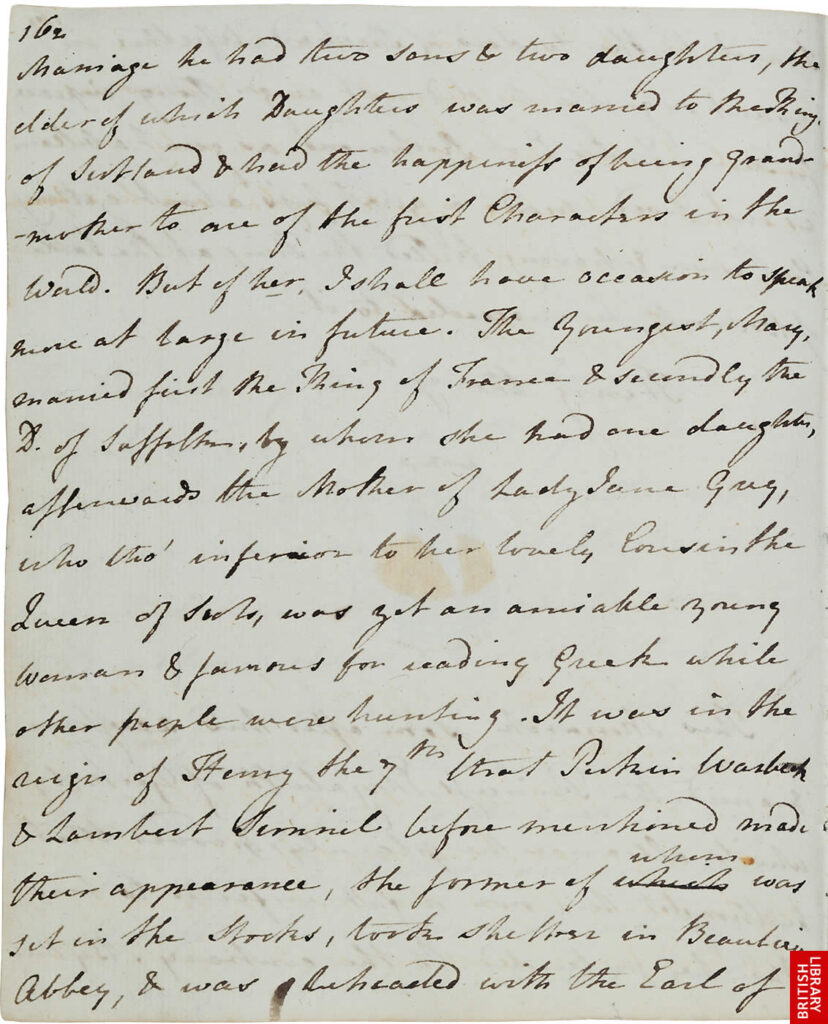 162
Marriage he had two sons & two daughters, the
elder of which Daughters was married to the King
of Scotland & had the happiness of being grand-
-mother to one of the first Characters in the
World. But of her, I shall have occasion to speak
more at large in future. The Youngest, Mary,
married first the King of France & secondly the
D. of Suffolk, by whom she had one daughter,
afterwards the Mother of Lady Jane Grey,
who tho' inferior to her lovely Cousin the
Queen of Scots, was yet an amiable young
woman & famous for reading Greek while
other people were hunting. It was in the
reign of Henry the 7th that Perkin Warbeck
& Lambert Simnel before mentioned made
their appearance, the former of which whom was
set in the Stocks, took shelter in Beaulieu
Abbey, & was beheaded with the Earl of
BRITISH
LIBRARY